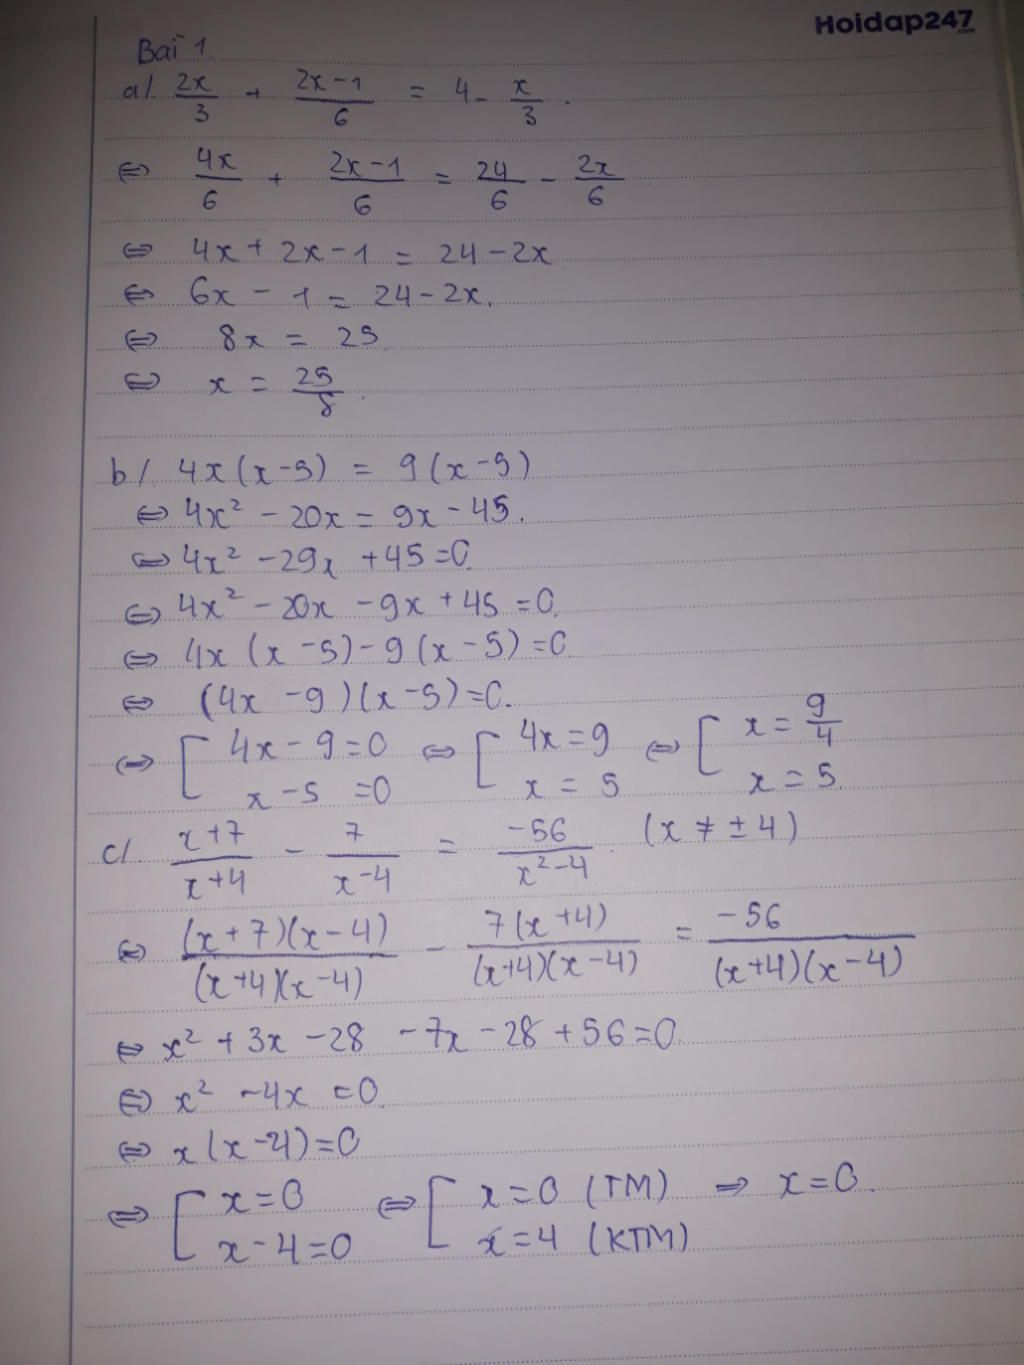 Hoidap247
.com
Bài 1
a/. 2x/3 + (2x-1)/6 = 4 - x/3.
⇔ 4x/6 + (2x-1)/6 = 24/6 - 2x/6
⇔ 4x + 2x - 1 = 24 - 2x
⇔ 6x - 1 = 24 - 2x.
⇔ 8x = 25
⇔ x = 25/8.
b/. 4x(x-5) = 9(x-5)
⇔ 4x² - 20x = 9x - 45.
⇔ 4x² - 29x + 45 = 0
⇔ 4x² - 20x - 9x + 45 = 0.
⇔ 4x (x - 5) - 9 (x - 5) = 0
⇔ (4x - 9)(x - 5) = 0.
⇔ [ 4x - 9 = 0 ⇔ [ 4x = 9 ⇔ [ x = 9/4
x - 5 = 0 x = 5 x = 5.
c/. (x+7)/(x+4) - 7/(x-4) = -56/(x²-4). (x ≠ ±4)
⇔ (x+7)(x-4)/(x+4)(x-4) - 7(x+4)/(x+4)(x-4) = -56/(x+4)(x-4)
⇔ x² + 3x - 28 - 7x - 28 + 56 = 0
⇔ x² - 4x = 0
⇔ x(x-4) = 0
⇔ [ x = 0 ⇔ [ x = 0 (TM) ⇒ x = 0.
x - 4 = 0 x = 4 (KTM)